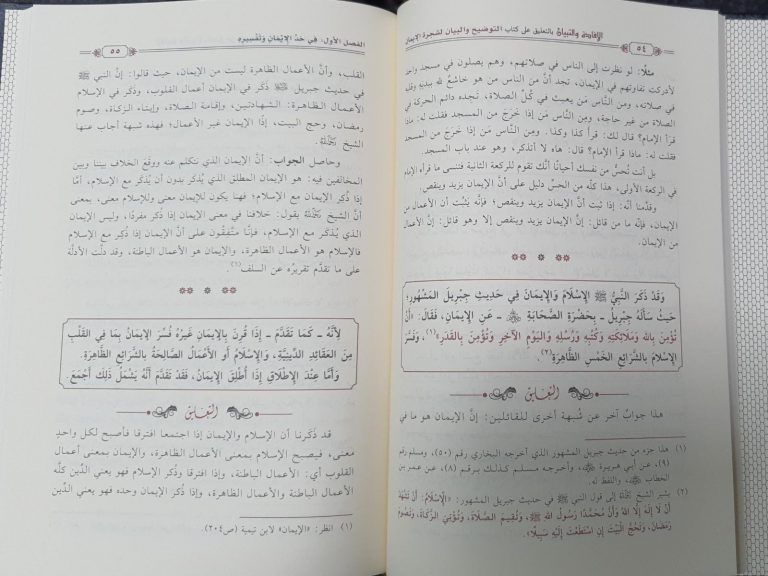 ٥٤
الإفادة والتبيان بالتعليق على كتاب التوضيح والبيان لشجرة الإيمان
مثلًا: لو نظرت إلى الناس في صلاتهم، وهم يصلون في مسجد واحد
لأدركت تفاوتهم في الإيمان، تجد أنَّ من الناس من هو خاشعٌ لله ببدنه وقلبه
في صلاته، ومن الناس مَن يعبث في كلِّ الصلاة، تجده دائم الحركة في
الصلاة من غير حاجة، ومِن الناس مَن إذا خَرَجَ من المسجد فقلت له: ماذا
قرأ الإمام؟ قال لك: قرأ كذا وكذا. ومِن الناس مَن إذا خَرَجَ من المسجد
فقلت له: ماذا قرأ الإمام؟ قال: هاه لا أتذكر، وهو عند باب المسجد.
بل أنت تُحسُّ من نفسك أحيانًا أنَّك تقوم للركعة الثانية فتنسى ما قرأه الإمام
في الركعة الأولى، هذا كلّه من الحسِّ دليل على أنَّ الإيمان يزيد وينقص.
وقدَّمنا أنه: إذا ثبت أنَّ الإيمان يزيد وينقص؛ فإنَّه يَثبُت أن الأعمال من
الإيمان، فإنَّه ما من قائل: إنَّ الإيمان يزيد وينقص إلا وهو قائل: إنَّ الأعمال
من الإيمان.
وَقَدْ ذَكَرَ النَّبِيُّ ﷺ الإِسْلَامَ وَالإِيمَانَ فِي حَدِيثِ جِبْرِيلَ المَشْهُورِ؛
حَيْثُ سَأَلَهُ جِبْرِيلُ - بِحَضْرَةِ الصَّحَابَةِ - عَنِ الإِيمَانِ، فَقَالَ: «أَنْ
تُؤْمِنَ بِاللهِ وَمَلَائِكَتِهِ وَكُتُبِهِ وَرُسُلِهِ وَاليَوْمِ الآخِرِ وَتُؤْمِنَ بِالقَدَرِ»(١)، وَفَسَّرَ
الإِسْلَامَ بِالشَّرَائِعِ الخَمْسِ الظَّاهِرَةِ(٢).
التعليق
هذا جوابٌ آخر عن شُبهة أخرى للقائلين: إنَّ الإيمان هو ما في
(١) هذا جزء من حديث جبريل المشهور الذي أخرجه البخاري رقم (٥٠)، ومسلم رقم
(٩)، عن أبي هريرة، وأخرجه مسلم كذلك برقم (٨)، عن عمر بن
الخطاب، واللفظ له.
(٢) يشير الشيخ إلى قول النبي ﷺ في حديث جبريل المشهور: «الإِسْلَامُ: أَنْ تَشْهَدَ
أَنْ لَا إِلَهَ إِلَّا اللهُ وَأَنَّ مُحَمَّدًا رَسُولُ اللهِ ﷺ، وَتُقِيمَ الصَّلَاةَ، وَتُؤْتِيَ الزَّكَاةَ، وَتَصُومَ
رَمَضَانَ، وَتَحُجَّ البَيْتَ إِنِ اسْتَطَعْتَ إِلَيْهِ سَبِيلًا».
الفصل الأول: في حَدِّ الإيمَانِ وَتَفْسِيرِهِ
٥٥
القلب، وأنَّ الأعمال الظاهرة ليست من الإيمان، حيث قالوا: إنَّ النبي ﷺ
في حديث جبريل ذَكر في الإيمان أعمال القلوب، وذكَر في الإسلام
الأعمال الظاهرة: الشهادتين، وإقامة الصلاة، وإيتاء الزكاة، وصوم
رمضان، وحج البيت، إذًا الإيمان غير الأعمال؛ فهذه شبهة أجاب عنها
الشيخ
وحاصل الجواب: أنَّ الإيمان الذي نتكلم عنه ووقَعَ الخلاف بيننا وبين
المخالفين فيه: هو الإيمان المطلق الذي يُذكر بدون أن يُذكر مع الإسلام، أمَّا
إذا ذُكر الإيمان مع الإسلام؛ فهنا يكون للإيمان معنى وللإسلام معنى، بمعنى
أنَّ الشيخ يقول: خلافنا في معنى الإيمان إذا ذُكر مفردًا، وليس الإيمان
الذي يُذكر مع الإسلام، فإنَّا متَّفقُون على أنَّ الإيمان إذا ذكِرَ مع الإسلام
فالإسلام هو الأعمال الظاهرة، والإيمان هو الأعمال الباطنة، وقد دلَّت الأدلَّة
على ما تقدَّم تقريرُه عن السلف(١).
لِأَنَّهُ - كَمَا تَقَدَّمَ - إِذَا قُرِنَ بِالإِيمَانِ غَيْرُهُ فُسِّرَ الإِيمَانُ بِمَا فِي القَلْبِ
مِنَ العَقَائِدِ الدِّينِيَّةِ، وَالإِسْلَامُ أَوِ الأَعْمَالُ الصَّالِحَةُ بِالشَّرَائِعِ الظَّاهِرَةِ.
وَأَمَّا عِنْدَ الإِطْلَاقِ إِذَا أُطْلِقَ الإِيمَانُ، فَقَدْ تَقَدَّمَ أَنَّهُ يَشْمَلُ ذَلِكَ أَجْمَعَ.
التعليق
قد ذكَرنا أن الإسلام والإيمان إذا اجتمعا افترقا فأصبح لكل واحدٍ
معنى، فيصبح الإسلام بمعنى الأعمال الظاهرة، والإيمان بمعنى أعمال
القلوب أي: الأعمال الباطنة، وإذا افترقا وذُكر الإسلام فهو يعني الدِّين كلَّه
الأعمال الباطنة والأعمال الظاهرة، وإذا ذُكرَ الإيمان وحده فهو يعني الدِّين
(١) انظر: «الإيمان» لابن تيمية (ص٢٠٤).